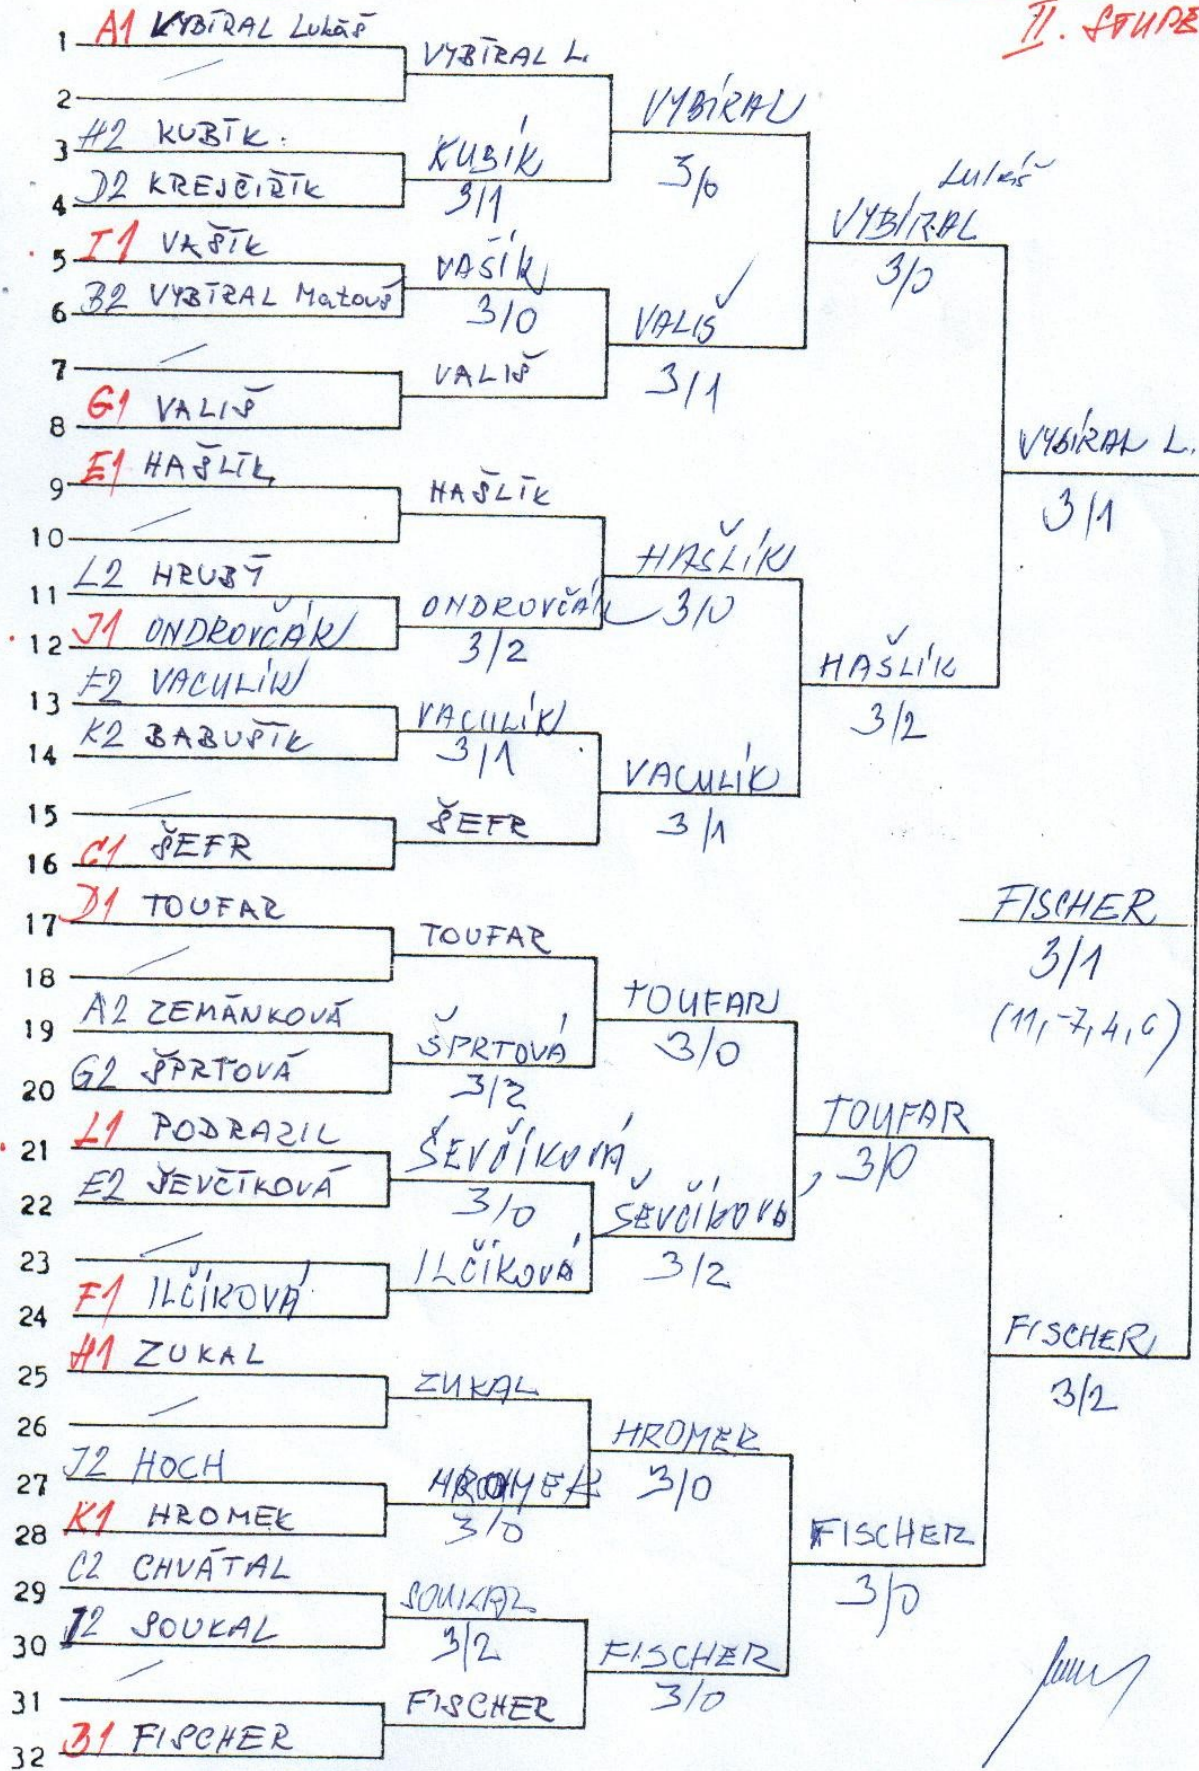 II. STUPE
1 A1 VYBÍRAL Lukáš
2
3 H2 KUBÍK
4 D2 KREJČIŘÍK
5 I1 VAŠÍK
6 B2 VYBÍRAL Matouš
7
8 G1 VALIŠ
9 E1 HAŠLÍK
10
11 L2 HRUBÝ
12 J1 ONDROVČÁK
13 F2 VACULÍK
14 K2 BABUŠÍK
15
16 C1 ŠEFR
17 D1 TOUFAR
18
19 A2 ZEMÁNKOVÁ
20 G2 ŠPRTOVÁ
21 L1 PODRAZIL
22 E2 ŠEVČÍKOVÁ
23
24 F1 ILČÍKOVÁ
25 H1 ZUKAL
26
27 J2 HOCH
28 K1 HROMEK
29 C2 CHVÁTAL
30 I2 SOUKAL
31
32 B1 FISCHER
VYBÍRAL L.
KUBÍK
3/1
VAŠÍK
3/0
VALIŠ
HAŠLÍK
ONDROVČÁK
3/2
VACULÍK
3/1
ŠEFR
TOUFAR
ŠPRTOVÁ
3/2
ŠEVČÍKOVÁ
3/0
ILČÍKOVÁ
ZUKAL
HROMEK
3/0
SOUKAL
3/2
FISCHER
VYBÍRAL
3/0
VALIŠ
3/1
HAŠLÍK
3/0
VACULÍK
3/1
TOUFAR
3/0
ŠEVČÍKOVÁ
3/2
HROMEK
3/0
FISCHER
3/0
Lukáš
VYBÍRAL
3/0
HAŠLÍK
3/2
TOUFAR
3/0
FISCHER
3/0
VYBÍRAL L.
3/1
FISCHER
3/2
FISCHER
3/1
(11,-7,4,6)